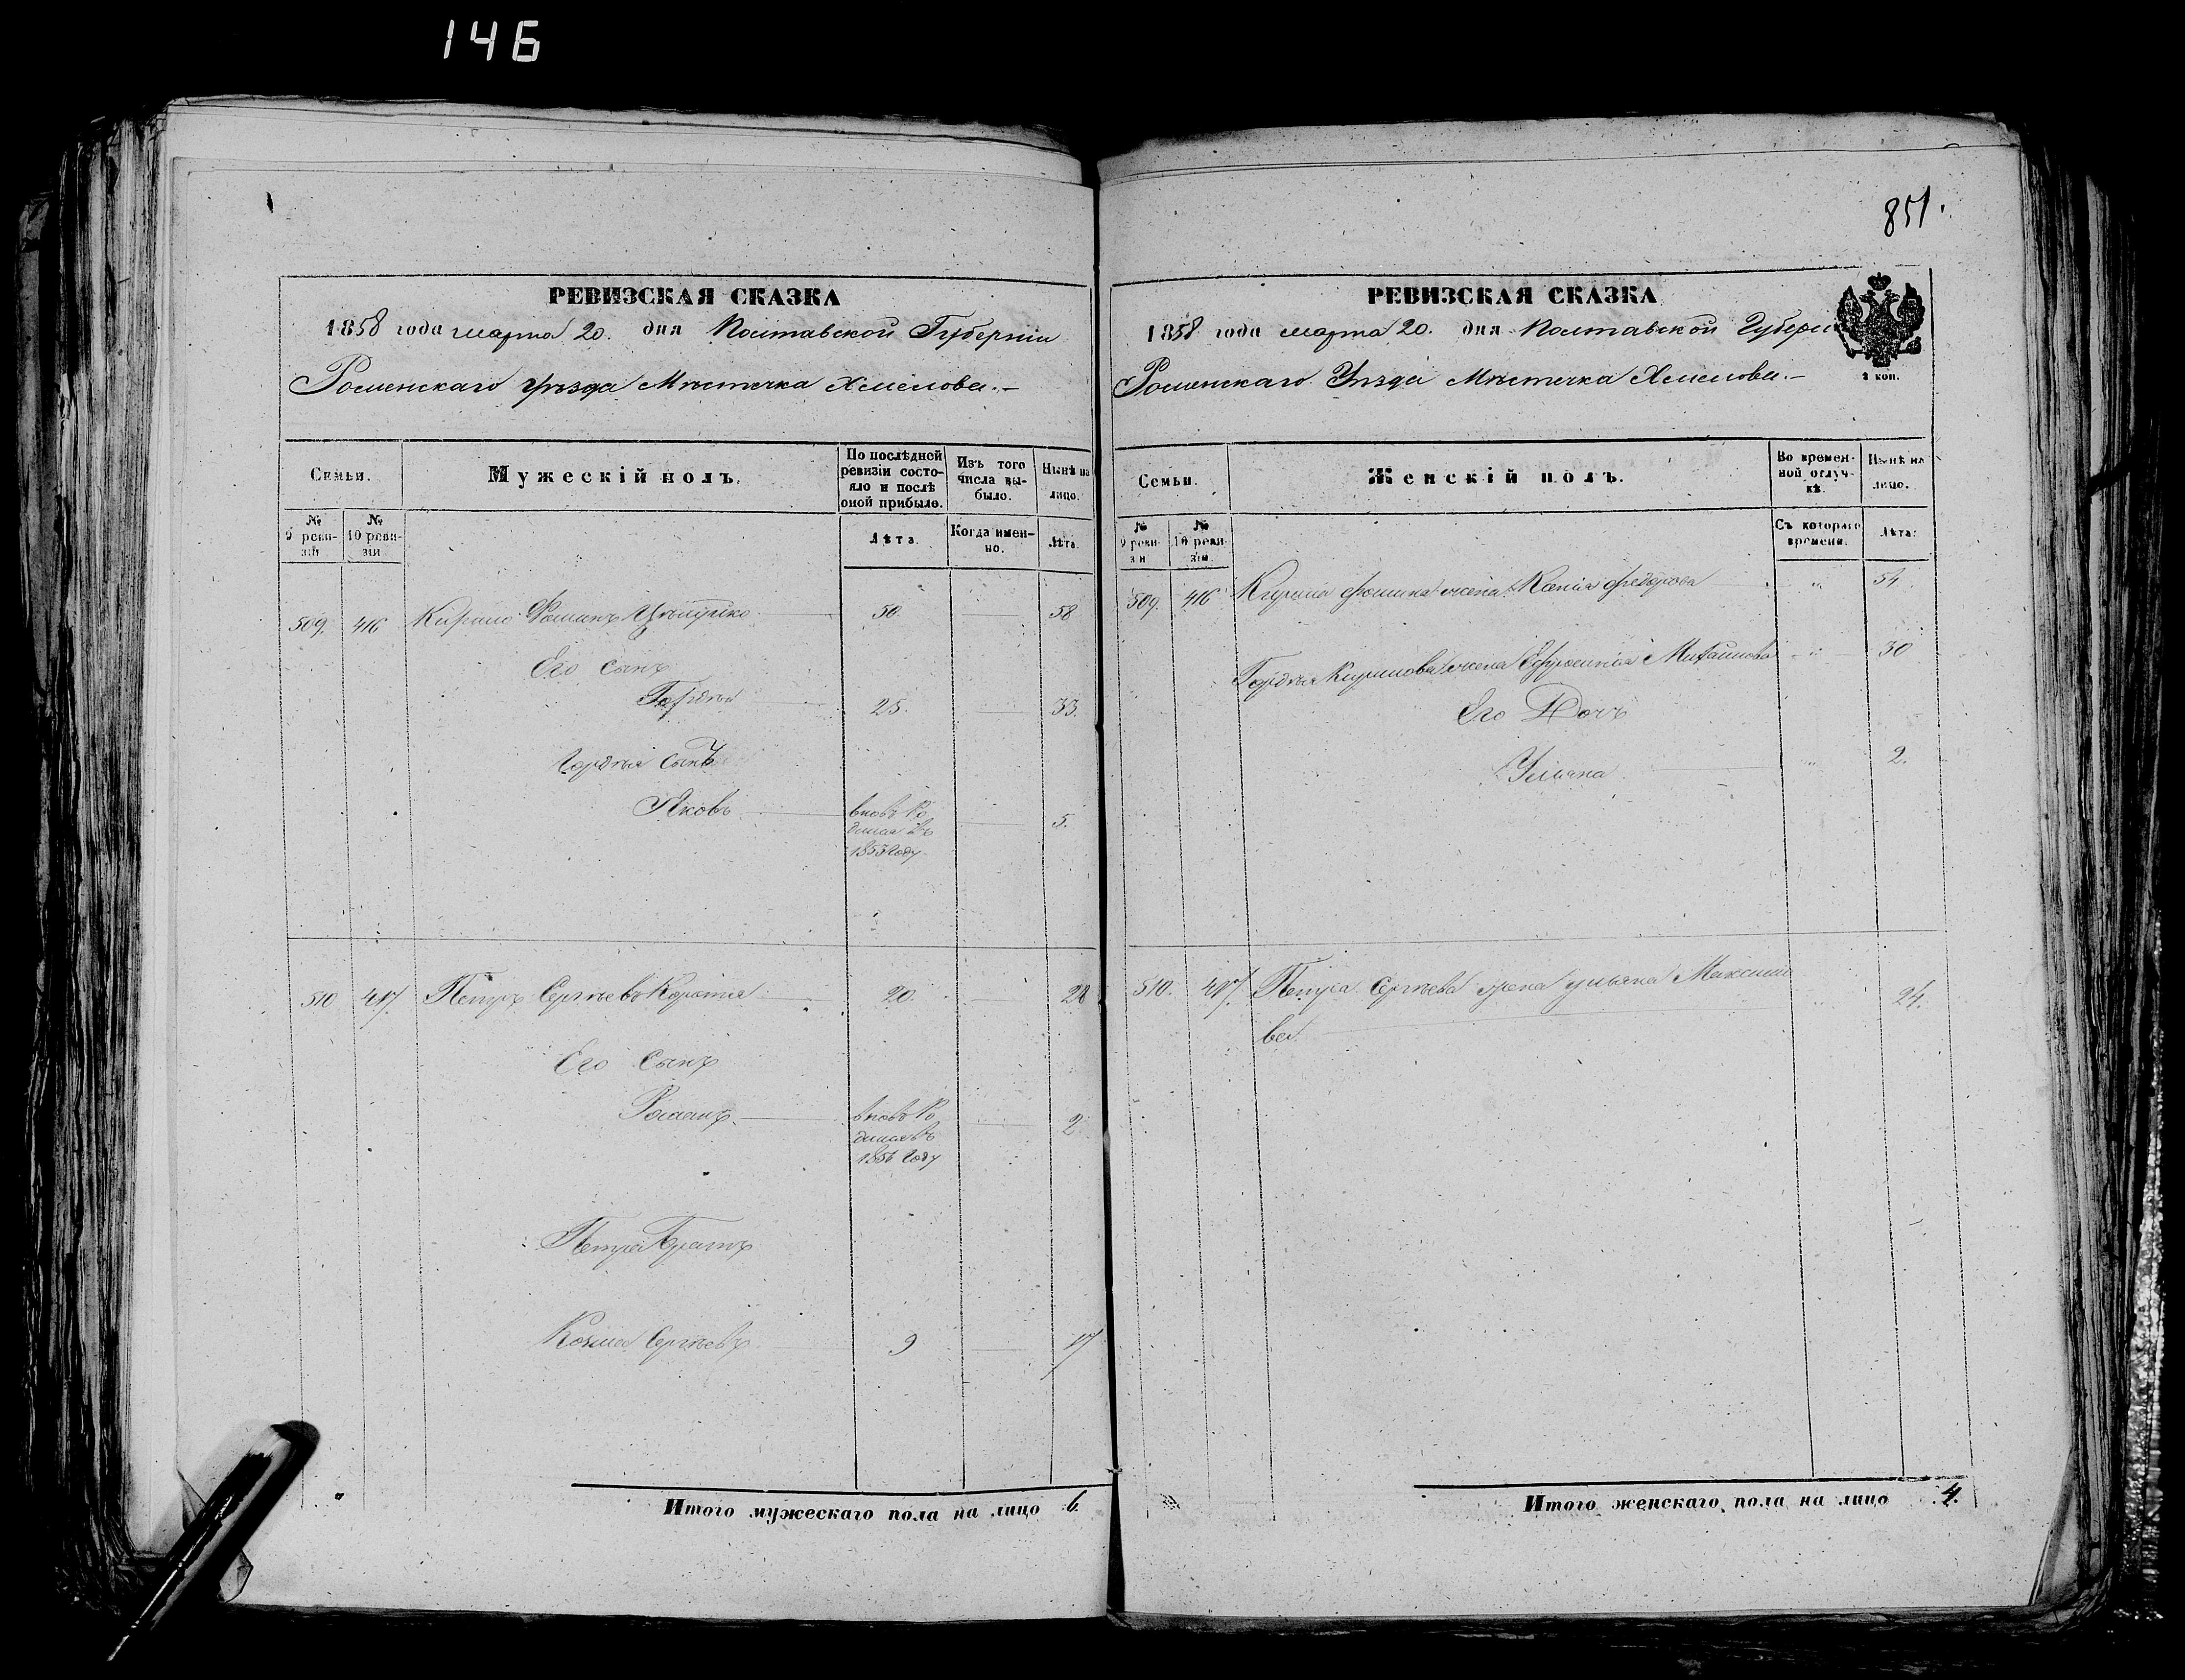 146
851.
РЕВИЗСКАЯ СКАЗКА
1858 года марта 20. дня Полтавской Губерніи
Роменскаго Уѣзда Мѣстечка Хмелова.—
Семьи.
Мужескій полъ.
По послѣдней ревизіи состояло и послѣ оной прибыло.
Изъ того числа выбыло.
Нынѣ на лицо.
№ 9 ревизіи
№ 10 ревизіи
Лѣта.
Когда именно.
Лѣта.
509. 416 Кирило Фоминъ 50. 58
Его сынъ
Гордѣй 25. 33.
Гордѣя сынъ
Яковъ вновь Ро 5.
дился въ
1853 году
510 417. Петръ Сергѣевъ 20. 28
Его сынъ
Романъ вновь Ро 2
дился въ
1856 году
Петра братъ
Козма Сергѣевъ 9 17
Итого мужескаго пола на лицо 6.
РЕВИЗСКАЯ СКАЗКА
1858 года марта 20. дня Полтавской Губерні
2 коп.
Роменскаго Уѣзда Мѣстечка Хмелова.—
Семьи.
Женскій полъ.
Во временной отлучкѣ.
Нынѣ на лицо.
№ 9 ревизіи
№ 10 ревизіи.
Съ котораго времени.
Лѣта.
509. 416 Кирила Фомина жена Ксенія Фёдорова " 54
Гордѣя Кирилова жена Ефросинія Михайлова " 30
Его Дочь
Ульяна " 2.
510. 417. Петра Сергѣева жена Ульяна Максимо 24.
ва
Итого женскаго пола на лицо 4.